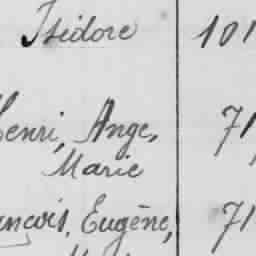 Isidore 101
Henri, Ange, 71
Marie
ançois, Eugène, 71